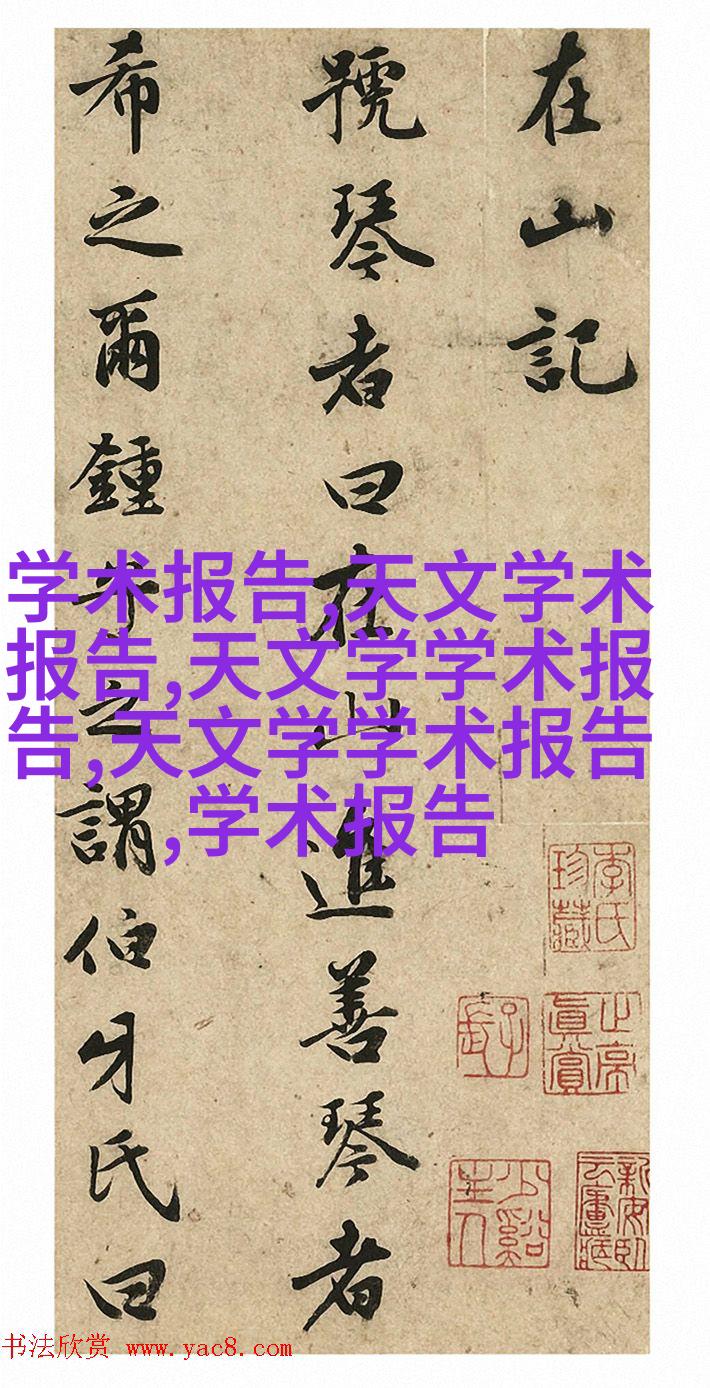 在山記
號琴者曰在山進善琴者
希之爾鍾之謂伯牙氏曰
学术报告,天文学术
报告,天文学学术报
告,天文学学术报告
,学术报告
少谿主人
书法欣赏 www.yac8.com